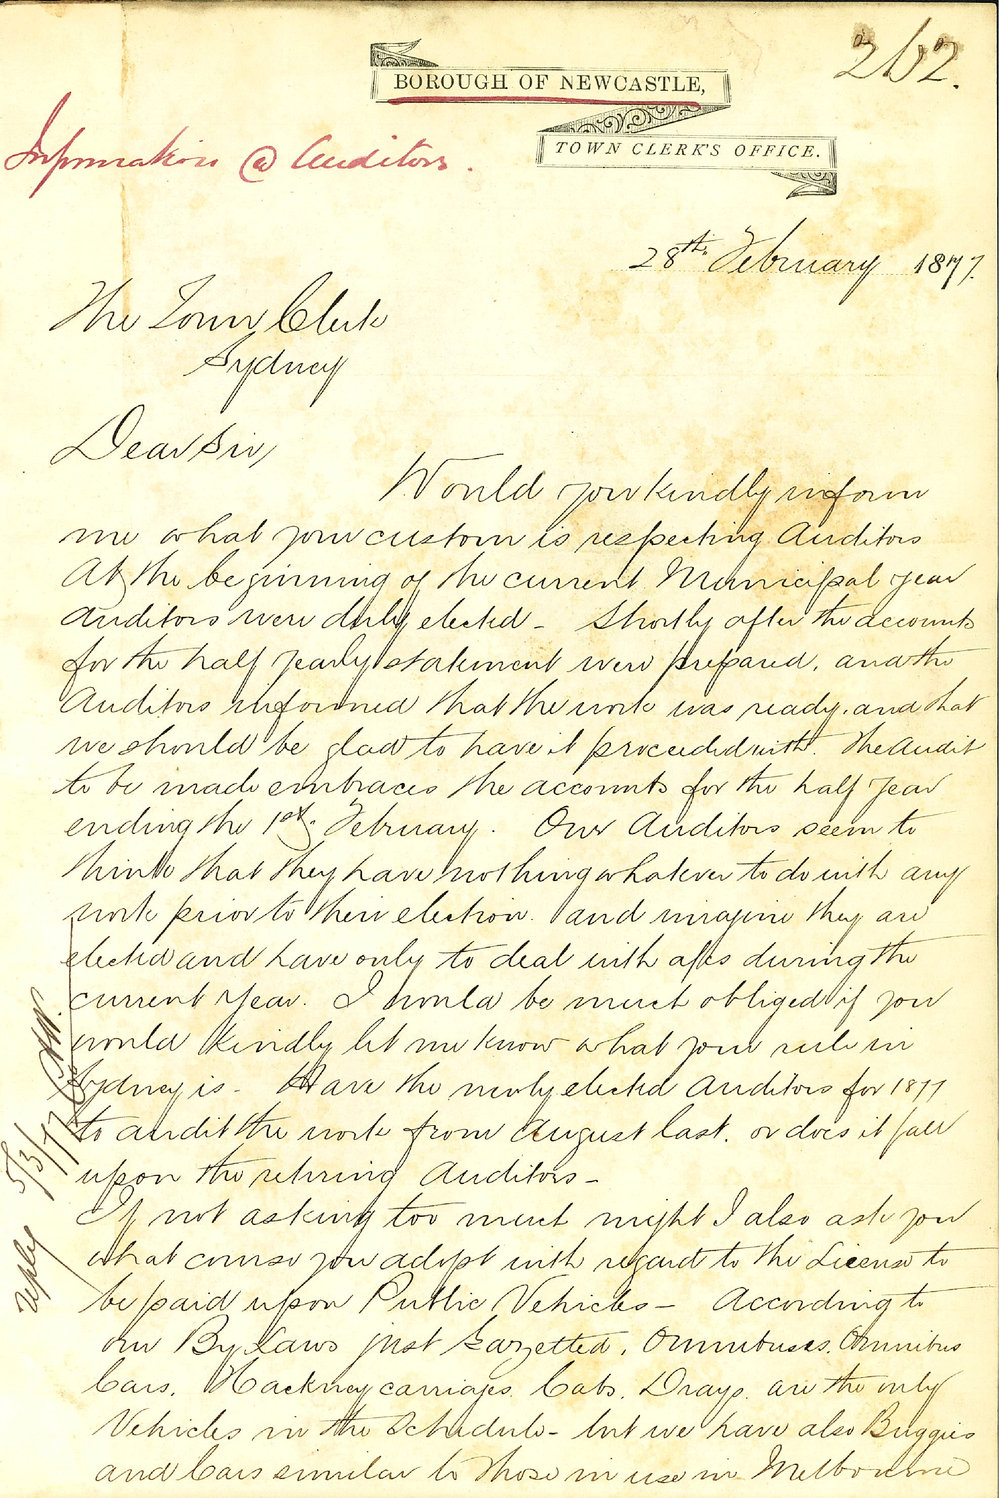 262.
BOROUGH OF NEWCASTLE,
TOWN CLERK'S OFFICE.
Information @ Auditors.
28th February 1877.
The Town Clerk
Sydney
Dear Sir,
Would you kindly inform
me what your custom is respecting Auditors
At the beginning of the current Municipal year
Auditors were duly elected - Shortly after the accounts
for the half yearly statement were prepared, and the
Auditors informed that the work was ready, and that
we should be glad to have it proceeded with. The Audit
to be made embraces the accounts for the half year
ending the 1st February. Our Auditors seem to
think that they have nothing whatever to do with any
work prior to their election. and imagine they are
elected and have only to deal with a/cs during the
current year. I would be much obliged if you
would kindly let me know what your rule in
Sydney is - Have the newly elected Auditors for 1877
to audit the work from August last, or does it fall
upon the retiring Auditors -
If not asking too much might I also ask you
what course you adopt with regard to the License to
be paid upon Public Vehicles - According to
our By Laws just Gazetted, Omnibuses, Omnibus
Cars, Hackney carriages, Cabs, Drays, are the only
Vehicles in the Schedule - but we have also Buggies
and Cars similar to those in use in Melbourne
reply 5/3/77